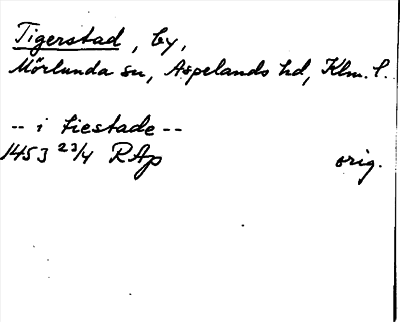 Tigerstad, by,
Mörlunda sn, Aspelands hd, Klm. l.
-- i tiestade --
1453 23/4 RAp orig.